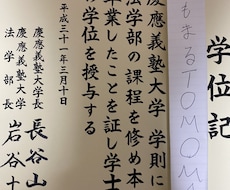 学位記
もまるTOMOM
慶應義塾大学 学則に
法学部の課程を修め本
卒業したことを証し学士
の学位を授与する
平成三十一年三月十日
慶應義塾大学長 長谷山
法学部長 岩谷十